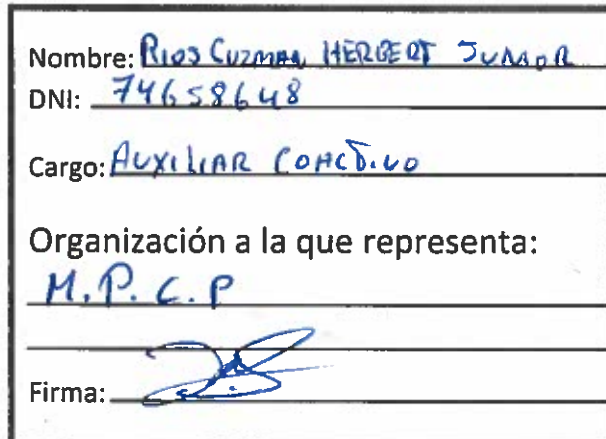 Nombre: RIOS GUZMAN HERBERT JUNIOR
DNI: 74658648
Cargo: AUXILIAR COACTIVO
Organización a la que representa:
M.P.C.P
Firma: